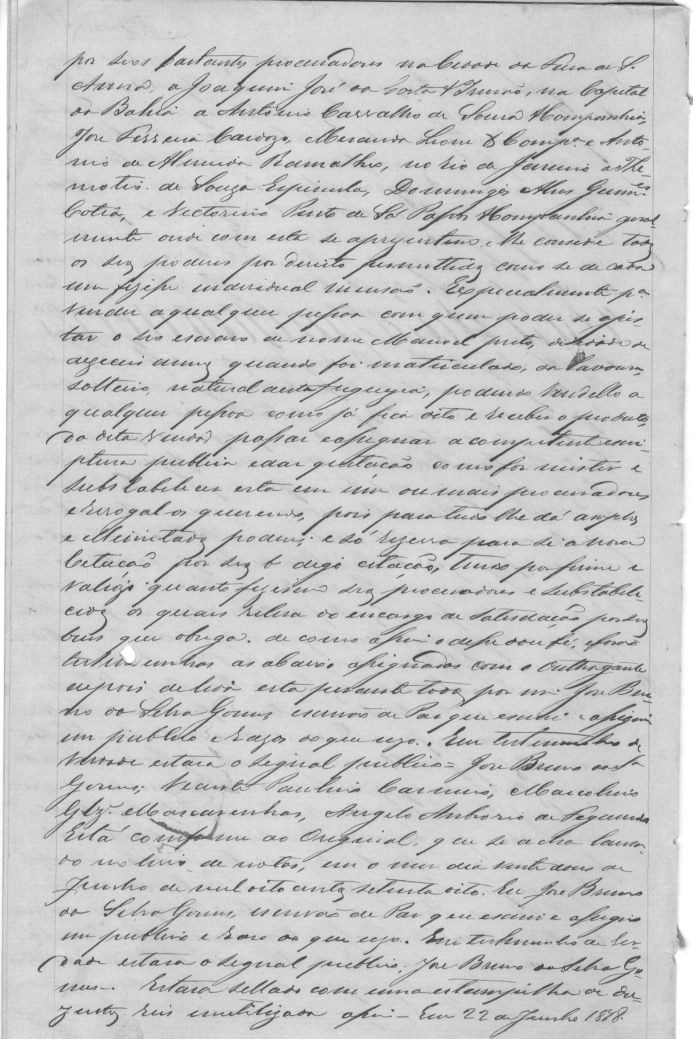 por seos bastantes procuradores na Cidade da Feira de S.
Anna, a Joaquim José da Costa & Irmão, na Capital
da Bahia a Antonio Carvalho de Souza & Companhia,
José Ferreira Cardozo, Miranda Leone & Compª e Anto-
nio de Almeida Ramalho, no Rio de Janeiro a The-
motio de Souza Espinula, Domingos Alves Guim.es
Cotia, e Victorino Pinto de Sá Passos & Companhia geral-
mente onde com esta se aprezentem, lhe concede todos
os seos poderes por direito permittidos como se de cada
um fizesse individual mensão. Especialmente pª
vender a qualquer pessoa com quem poder se ajus
tar o seo escravo de nome Manoel preto, de idade de
dezeceis annos quando foi matriculado, da lavoura
solteiro, natural desta freguezia, podendo vendello a
qualquer pessoa como já fica dito e receber o producto
da dita venda passar e assignar a competente escri-
ptura publica e dar quitacão como for mister e
substabelecer esta em um ou mais procuradores
e revogal os querendo, pois para tudo lhe dá amplos
e illimitados poderes; e só rezerva para si a nova
citacão, tendo por firme e
valiozo quanto fizerem seos procuradores e substabele-
cidos os quais releva do encargo de satisdacão por seos
bens que obriga. de como assim o disse dou fé, e forão
testemunhas as abaixo assignadas com o outhorgante
depois de lida esta perante todos por mim José Bru-
no da Silva Gomes escrivão de Paz que escrevi e assignei
em publico e razo do que uzo. Em testemunho de
verdade estava o signal publico = José Bruno da Sª
Gomes; Vicente Paulino Carneiro, Marcolino
Glz. Mascarenhas, Angelo Ambrozio de Figueredo
Está conforme ao Original, que se acha lanca-
do no livro de notas, em o mesmo dia vinte dous de
Junho de mil oito centos setenta oito. Eu José Bruno
da Silva Gomes, escrivão de Paz que escrevi e assigno
em publico e razo do que uzo. Em testemunho de ver-
dade estava o signal publico; José Bruno da Silva Go-
mes. Estava sellado com uma estampilha de du-
zentos reis inutilizada assim - Em 22 de Junho 1878.